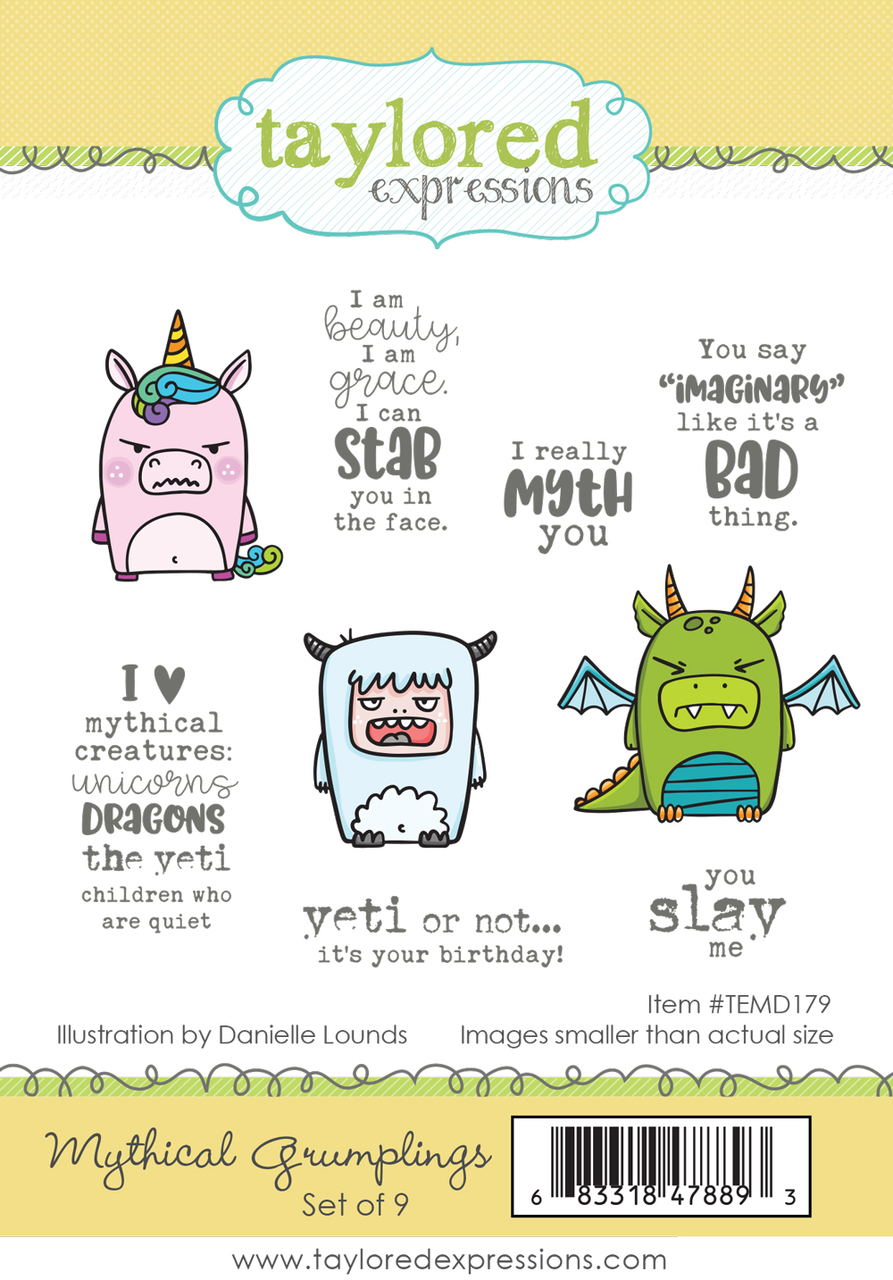 taylored
expressions
I am
beauty,
I am
grace.
I can
STAB
you in
the face.
I really
MYTH
you
You say
“iMAGiNARY”
like it's a
BAD
thing.
I ♥
mythical
creatures:
unicorns
DRAGONS
the yeti
children who
are quiet
yeti or not...
it's your birthday!
you
slay
me
Item #TEMD179
Illustration by Danielle Lounds
Images smaller than actual size
Mythical Grumplings
Set of 9
6 83318 47889 3
www.tayloredexpressions.com